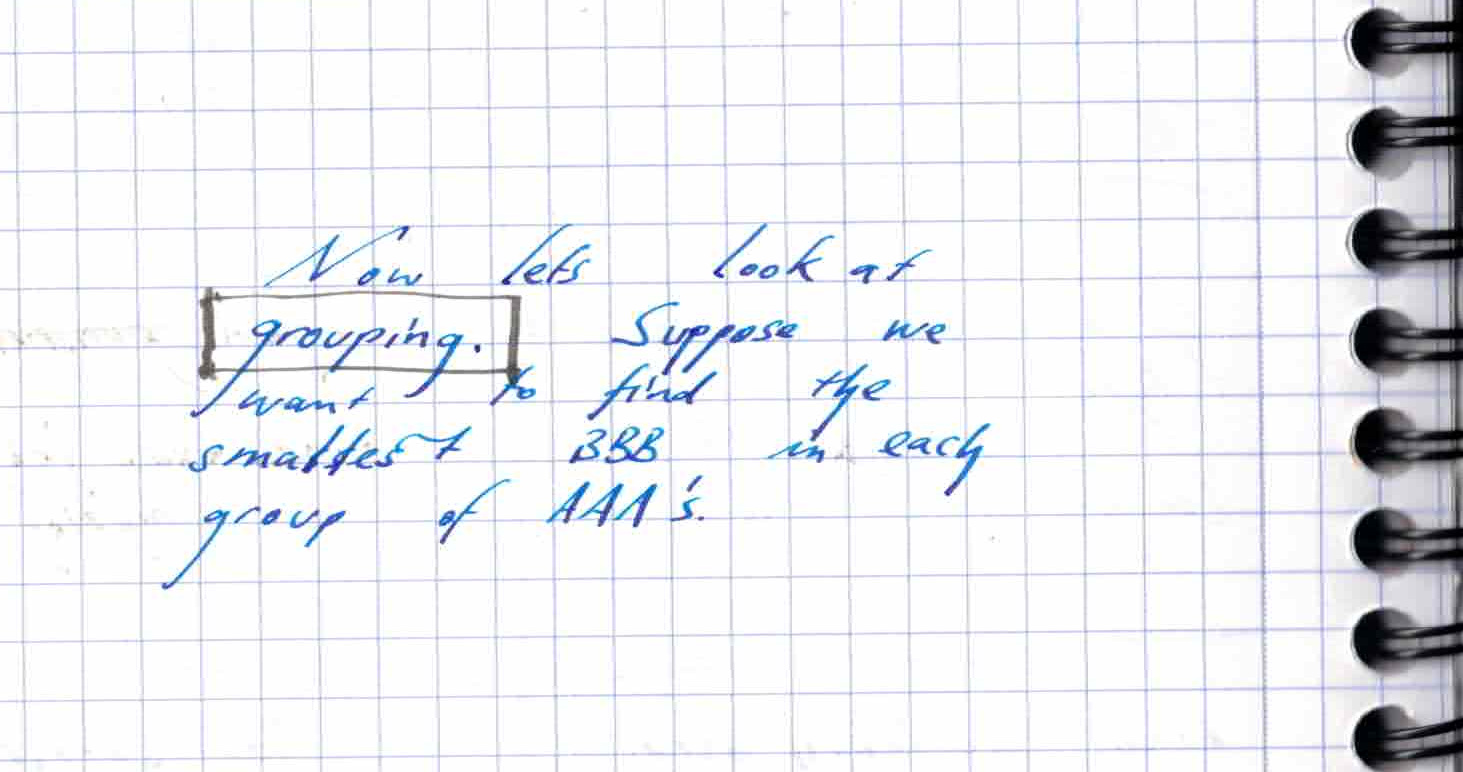 Now lets look at
grouping. Suppose we
want to find the
smallest BBB in each
group of AAA's.